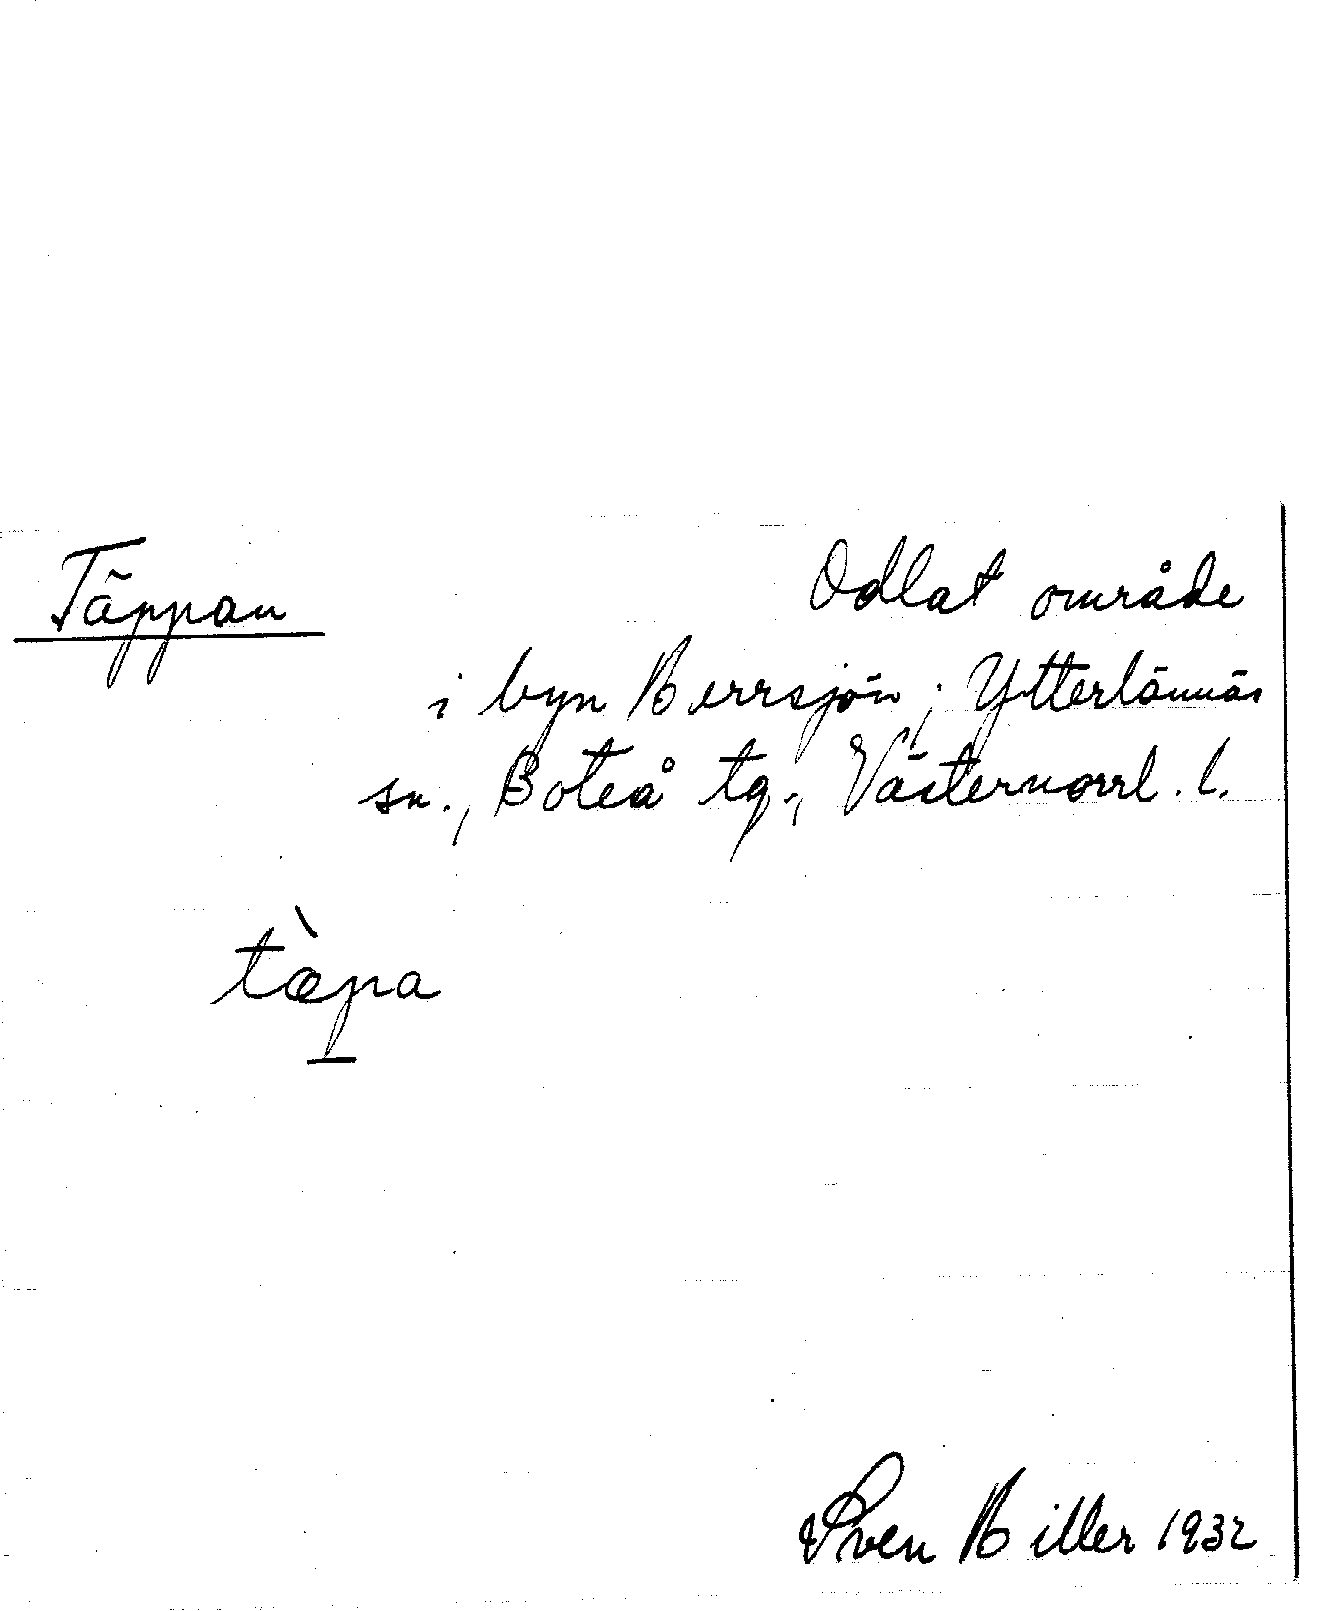 Täppan Odlat område
i byn Herrsjön; Ytterlännäs
sn., Boteå tg., Västernorrl. l.
tæ̀pa
Sven Hiller 1932